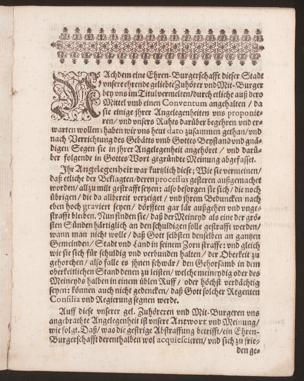 NAchdem eine Ehren-Burgerschafft dieser Stadt
unsere ehrende geliebte Zuhörer und Mit-Burger
bey uns im Titul vermelten/ durch etliche auß dero
Mittel umb einen Conventum angehalten/ da
sie einige ihrer Angelegenheiten uns proponiren/
und unsers Rahts darüber begehren und erwarten
wollen: haben wir uns heut dato zusammen gethan/ und
nach Verrichtung des Gebätts umb Gottes Beystand und gnädigen
Segen sie in ihrer Angelegenheit angehört/ und darüber
folgende in Gottes Wort gegründte Meinung abgefasset.
Ihr Angelegenheit war kurtzlich diese; Wie sie vermeinen/
daß etliche der Beklagten/ deren processus gestern außgemachet
worden/ allzu milt gestrafft seyen: also besorgen sie sich/ die noch
übrigen/ die da allbereit verzeiget/ und ihrem Bedunken nach
eben hoch graviert seyen/ dörfften gar lär außgehen und ungestrafft
bleiben. Nun finden sie/ daß der Meineyd als eine der grösten
Sünden härtiglich an den schuldigen solle gestrafft werden/
wann man nicht wolle/ daß Gott selbsten denselben an gantzen
Gemeinden/ Statt und Land in seinem Zorn straffe: und gleich
wie sie sich für schuldig und verbunden halten/ der Oberkeit zu
gehorchen/ also falle es ihnen schwär/ den Gehorsamb in dem
oberkeitlichen Stand denen zu leisten/ welche meineydig oder des
Meineyds halben in einem üblen Ruff/ oder höchst verdächtig
seyen: können auch nicht gedencken/ daß Gott solcher Regenten
Consilia und Regierung segnen werde.
Auff diese unserer gel. Zuhöreren und Mit-Burgeren uns
angebrachte Angelegenheit ist unser Antwort und Meinung/
wie folgt. Daß/ was die gestrige Abstraffung betrifft/ ein Ehren-
Burgerschafft derenthalben wol acquiescieren/ und sich zu frieden
ge-